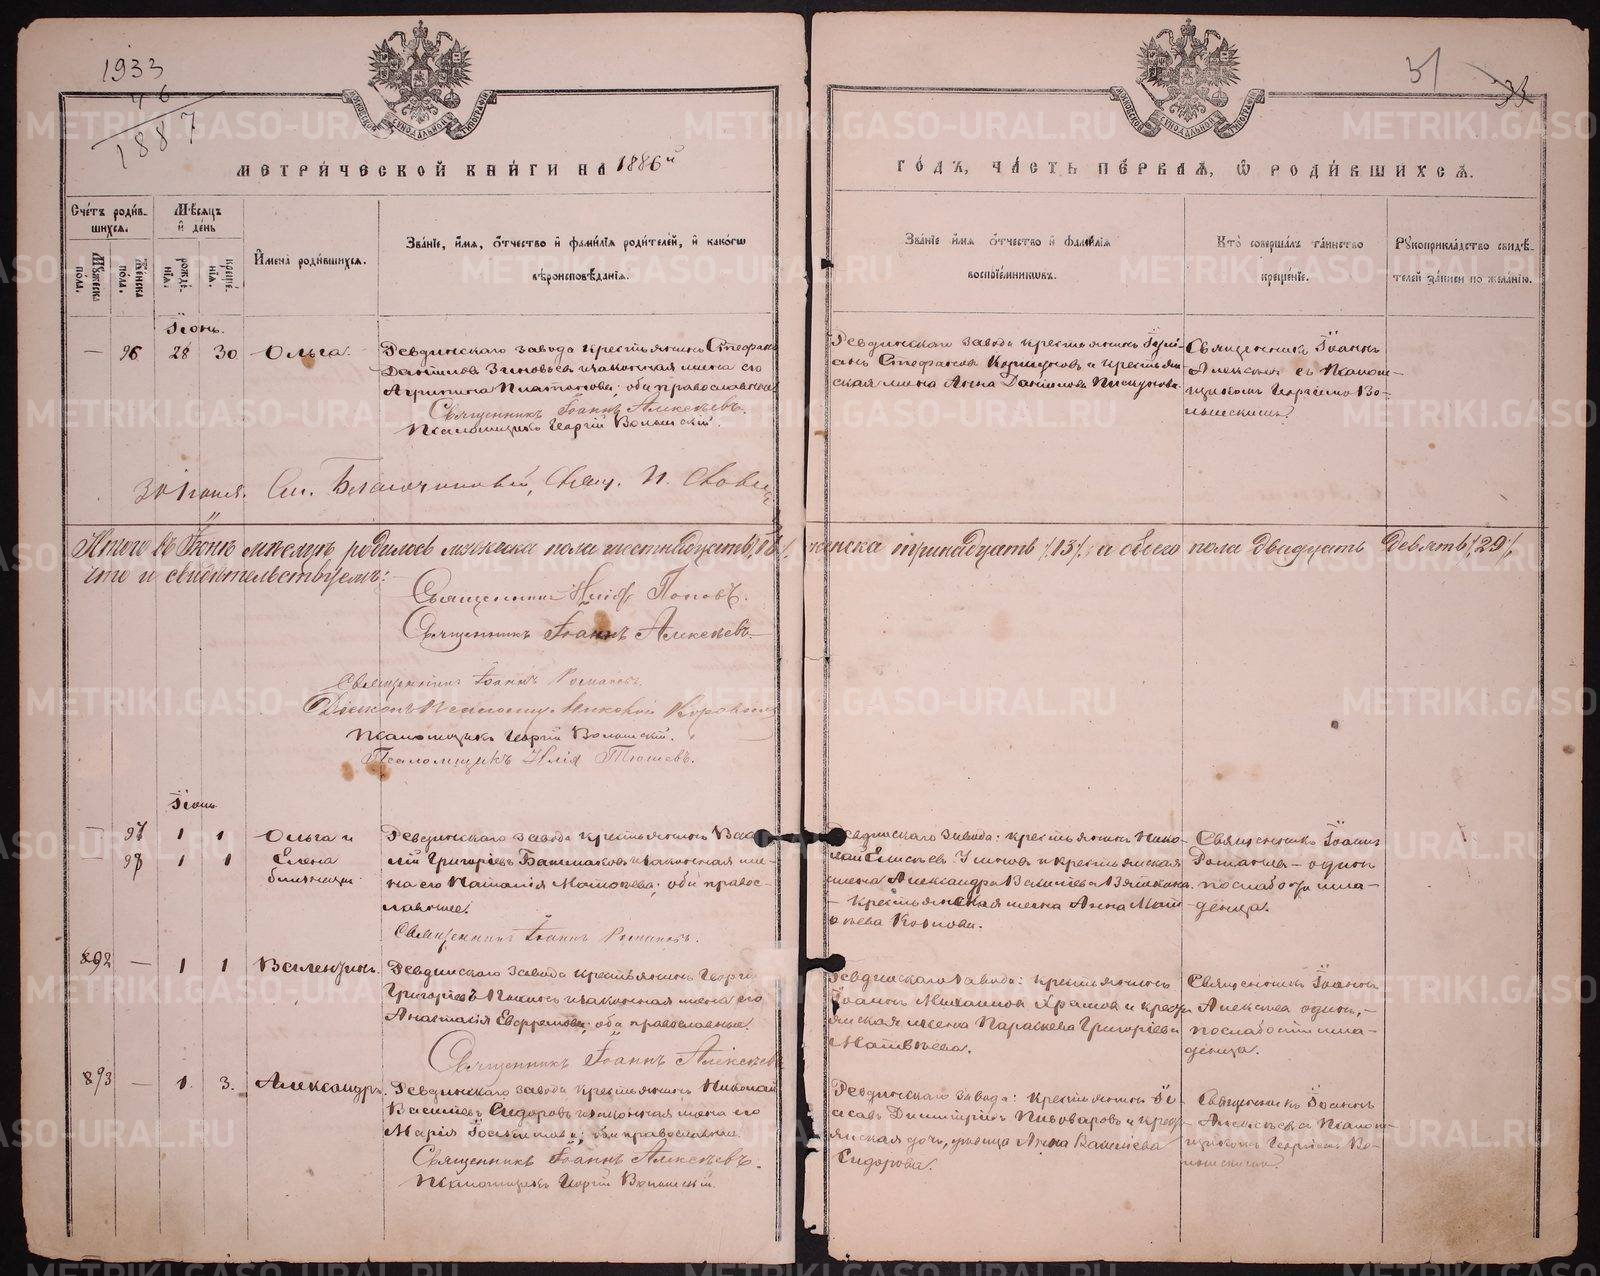 1933
46
1887
31
33
МЕТРИ́ЧЕСКОЙ КНИ́ГИ НА 1886й
ГО́ДЪ, ЧА́СТЬ ПЕ́РВАѦ, Ѡ РОДИ́ВШИХСѦ.
Сче́тъ роди́в-
шихсѧ.
Мꙋ́жеска пола.
Же́нска пола.
Мѣ́сѧцъ
и҆ де́нь
рожде́-
нїѧ.
креще́-
нїѧ.
И҆мена̀ роди́вшихсѧ.
Зва́нїе, и҆́мѧ, ѻ҆́тчество и҆ фами́лїѧ роди́телей, и҆ како́гѡ
вѣроисповѣ́данїѧ.
Зва́нїе и҆́мѧ ѻ҆́тчество и҆ фами́лїѧ
воспрїе́мникѡвъ.
Кто̀ соверша́лъ та́инство
креще́нїе.
Рꙋкоприкла́дство свидѣ́-
телей за́писи по жела́нїю.
Іюнь.
— 96 28 30 Ольга.
Ревдинскаго завода крестьянинъ Стефанъ
Даниловъ Зиновьевъ и законная жена его
Агрипина Платонова; оба православные
Священникъ Іоаннъ Алексѣевъ.
Псаломщикъ Георгій Волынскій.
Ревдинскаго завода крестьянинъ
Стефановъ Коршуновъ и крестьян-
ская жена Анна Данилова Пискунова.
Священникъ Іоаннъ
Алексѣевъ съ Псалом-
щикомъ Георгіемъ Во-
лынскимъ
30 Іюня. См. Благочинный, Свящ. П.
Итого въ Іюнѣ мѣсяцѣ родилось мужеска пола шестнадцать /16/, женска тринадцать /13/, а обоего пола двадцать девять /29/,
что и свидѣтельствуемъ:
Священникъ Илія Поповъ.
Священникъ Іоаннъ Алексѣевъ.
Священникъ Іоаннъ Романовъ.
Псаломщикъ Георгій Волынскій.
Псаломщикъ Илія Тюшевъ.
Іюль
— 97 1 1 Ольга и
— 98 1 1 Елена
близнецы
Ревдинскаго завода крестьянинъ Васи-
лій Григорьевъ Башмаковъ и законная же-
на его Наталія; оба правос-
лавные.
Священникъ Іоаннъ Романовъ.
Ревдинскаго завода: крестьянинъ Нико-
лай Елисѣевъ и крестьянская
жена Александра Васильева
— крестьянская жена Анна Мат-
вѣева
Священникъ Іоаннъ
Романовъ — одинъ
по слабости мла-
денца.
892 — 1 1 Валентинъ.
Ревдинскаго завода крестьянинъ Георгій
Григорьевъ и законная жена его
Анастасія Евфремова; оба православные.
Священникъ Іоаннъ Алексѣевъ
Ревдинскаго завода: крестьянинъ
Іоаннъ Михаиловъ Храмовъ и кресть-
янская жена Параскева Григорьева
Матвѣева.
Священникъ Іоаннъ
Алексѣевъ одинъ, —
по слабости мла-
денца.
893 — 1. 3. Александръ.
Ревдинскаго завода крестьянинъ Николай
Васильевъ Сидоровъ и законная жена его
Марія; оба православные.
Священникъ Іоаннъ Алексѣевъ.
Псаломщикъ Георгій Волынскій.
Ревдинскаго завода: крестьянинъ
Димитріевъ Пивоваровъ и кресть-
янская дочь, дѣвица Анна Васильева
Сидорова.
Священникъ Іоаннъ
Алексѣевъ съ Псалом-
щикомъ Георгіемъ Во-
лынскимъ
METRIKI.GASO-URAL.RU